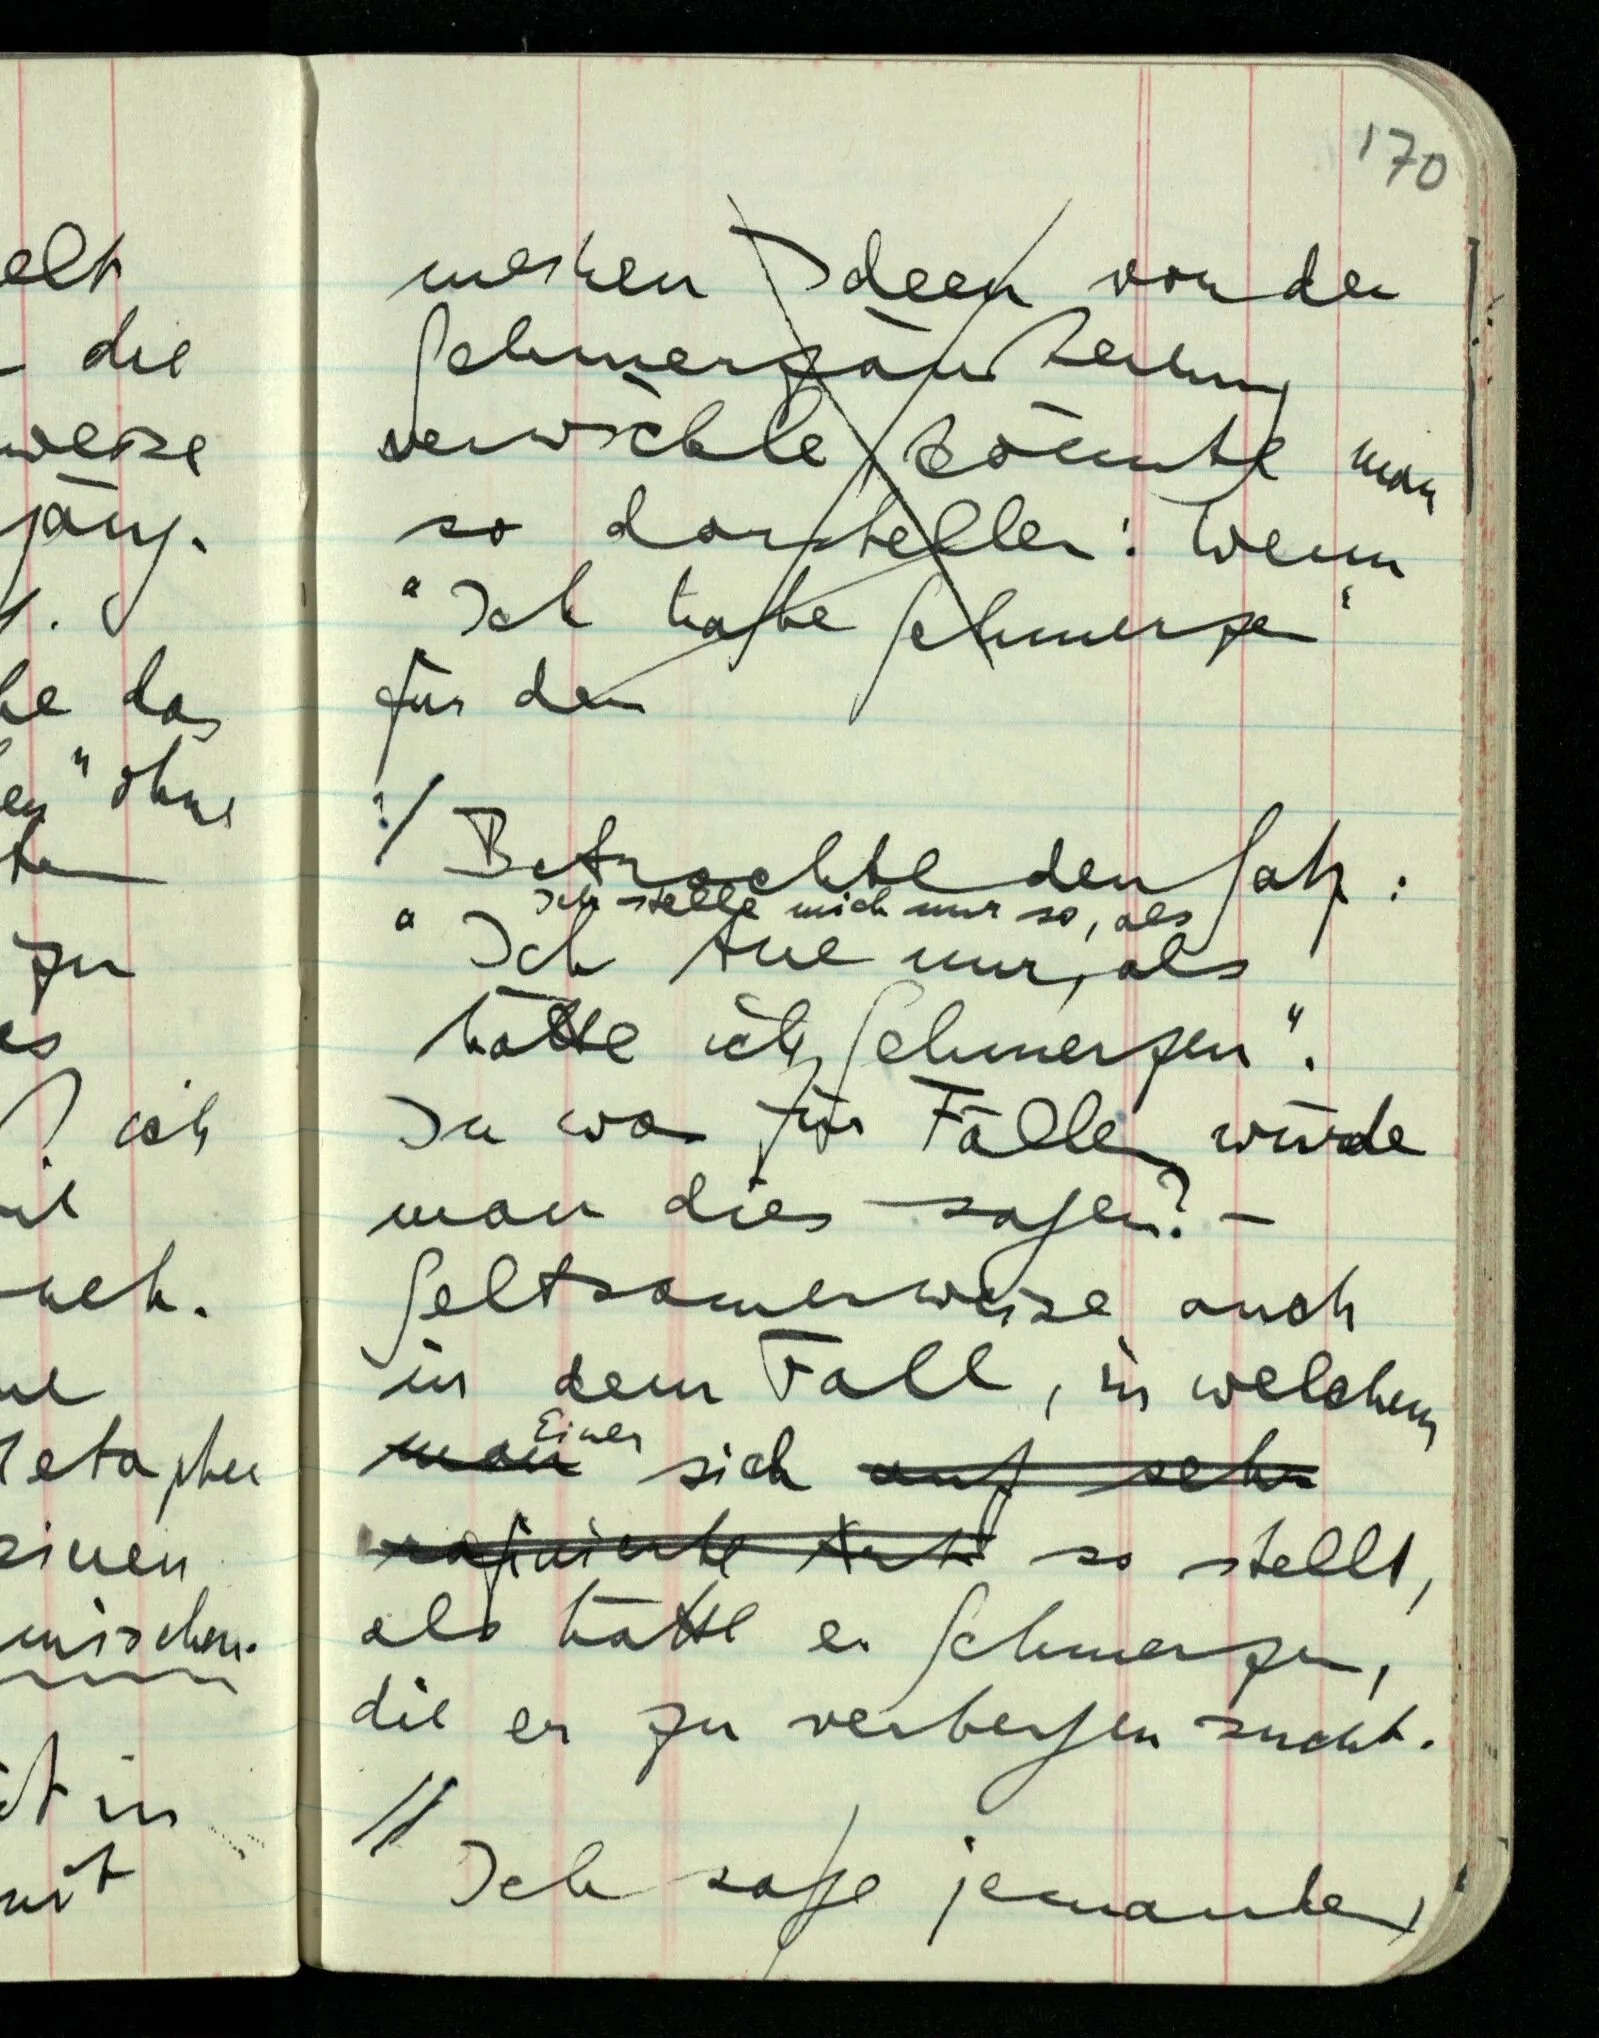 170
elt
die
weise
jäng.
he das
en" ohne
ten
zu
es
? ich
neh.
Metapher
einen
mischen.
in
mit
meinen Ideen von der
Schmerzäußerung
verwickle könnte man
so darstellen: Wenn
"Ich habe Schmerzen"
für den
?/ Betrachte den Satz:
Ich stelle mich nur so, als
"Ich tue nur, als
hätte ich Schmerzen".
In was für Fällen würde
man dies sagen? –
Seltsamerweise auch
in dem Fall, in welchem
Einer
man sich auf sehr
rafinierte Art so stellt,
als hätte er Schmerzen,
die er zu verbergen sucht.
// Ich sage jemandem,